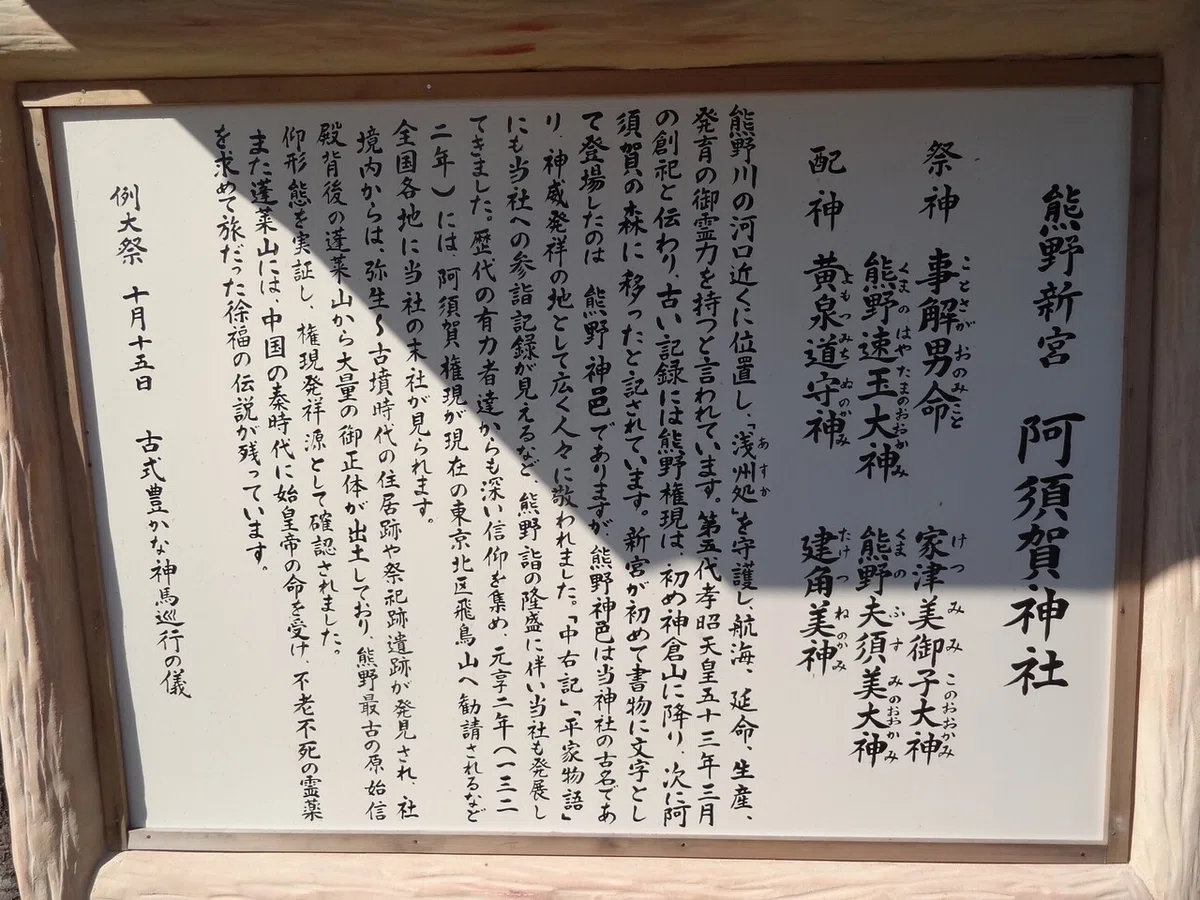 熊野新宮　阿須賀神社
祭神　事解男命　家津美御子大神
ことさが　おのみこと　けつ　みみ　このおおかみ
熊野速玉大神　熊野夫須美大神
くまの　はやたまのおおかみ　くまの　ふす　みのおおかみ
配神　黄泉道守神　建角美神
よもつ　みち　ぬのかみ　たけつ　ねのかみ
熊野川の河口近くに位置し、「浅州処」を守護し、航海、延命、生産、
あすか
発育の御霊力を持つと言われています。第五代孝昭天皇五十三年三月
の創祀と伝わり、古い記録には熊野権現は、初め神倉山に降り、次に阿
須賀の森に移ったと記されています。新宮が初めて書物に文字とし
て登場したのは　熊野神邑でありますが、熊野神邑は当神社の古名であ
り、神威発祥の地として広く人々に敬われました。「中右記」「平家物語」
にも当社への参詣記録が見えるなど、熊野詣の隆盛に伴い当社も発展し
てきました。歴代の有力者達からも深い信仰を集め、元享二年（一三二
二年）には、阿須賀権現が現在の東京北区飛鳥山へ勧請されるなど
全国各地に当社の末社が見られます。
境内からは、弥生～古墳時代の住居跡や祭祀跡遺跡が発見され、社
殿背後の蓬莱山から大量の御正体が出土しており、熊野最古の原始信
仰形態を実証し、権現発祥源として確認されました。
また蓬莱山には、中国の秦時代に始皇帝の命を受け、不老不死の霊薬
を求めて旅だった徐福の伝説が残っています。
例大祭　十月十五日　古式豊かな神馬巡行の儀